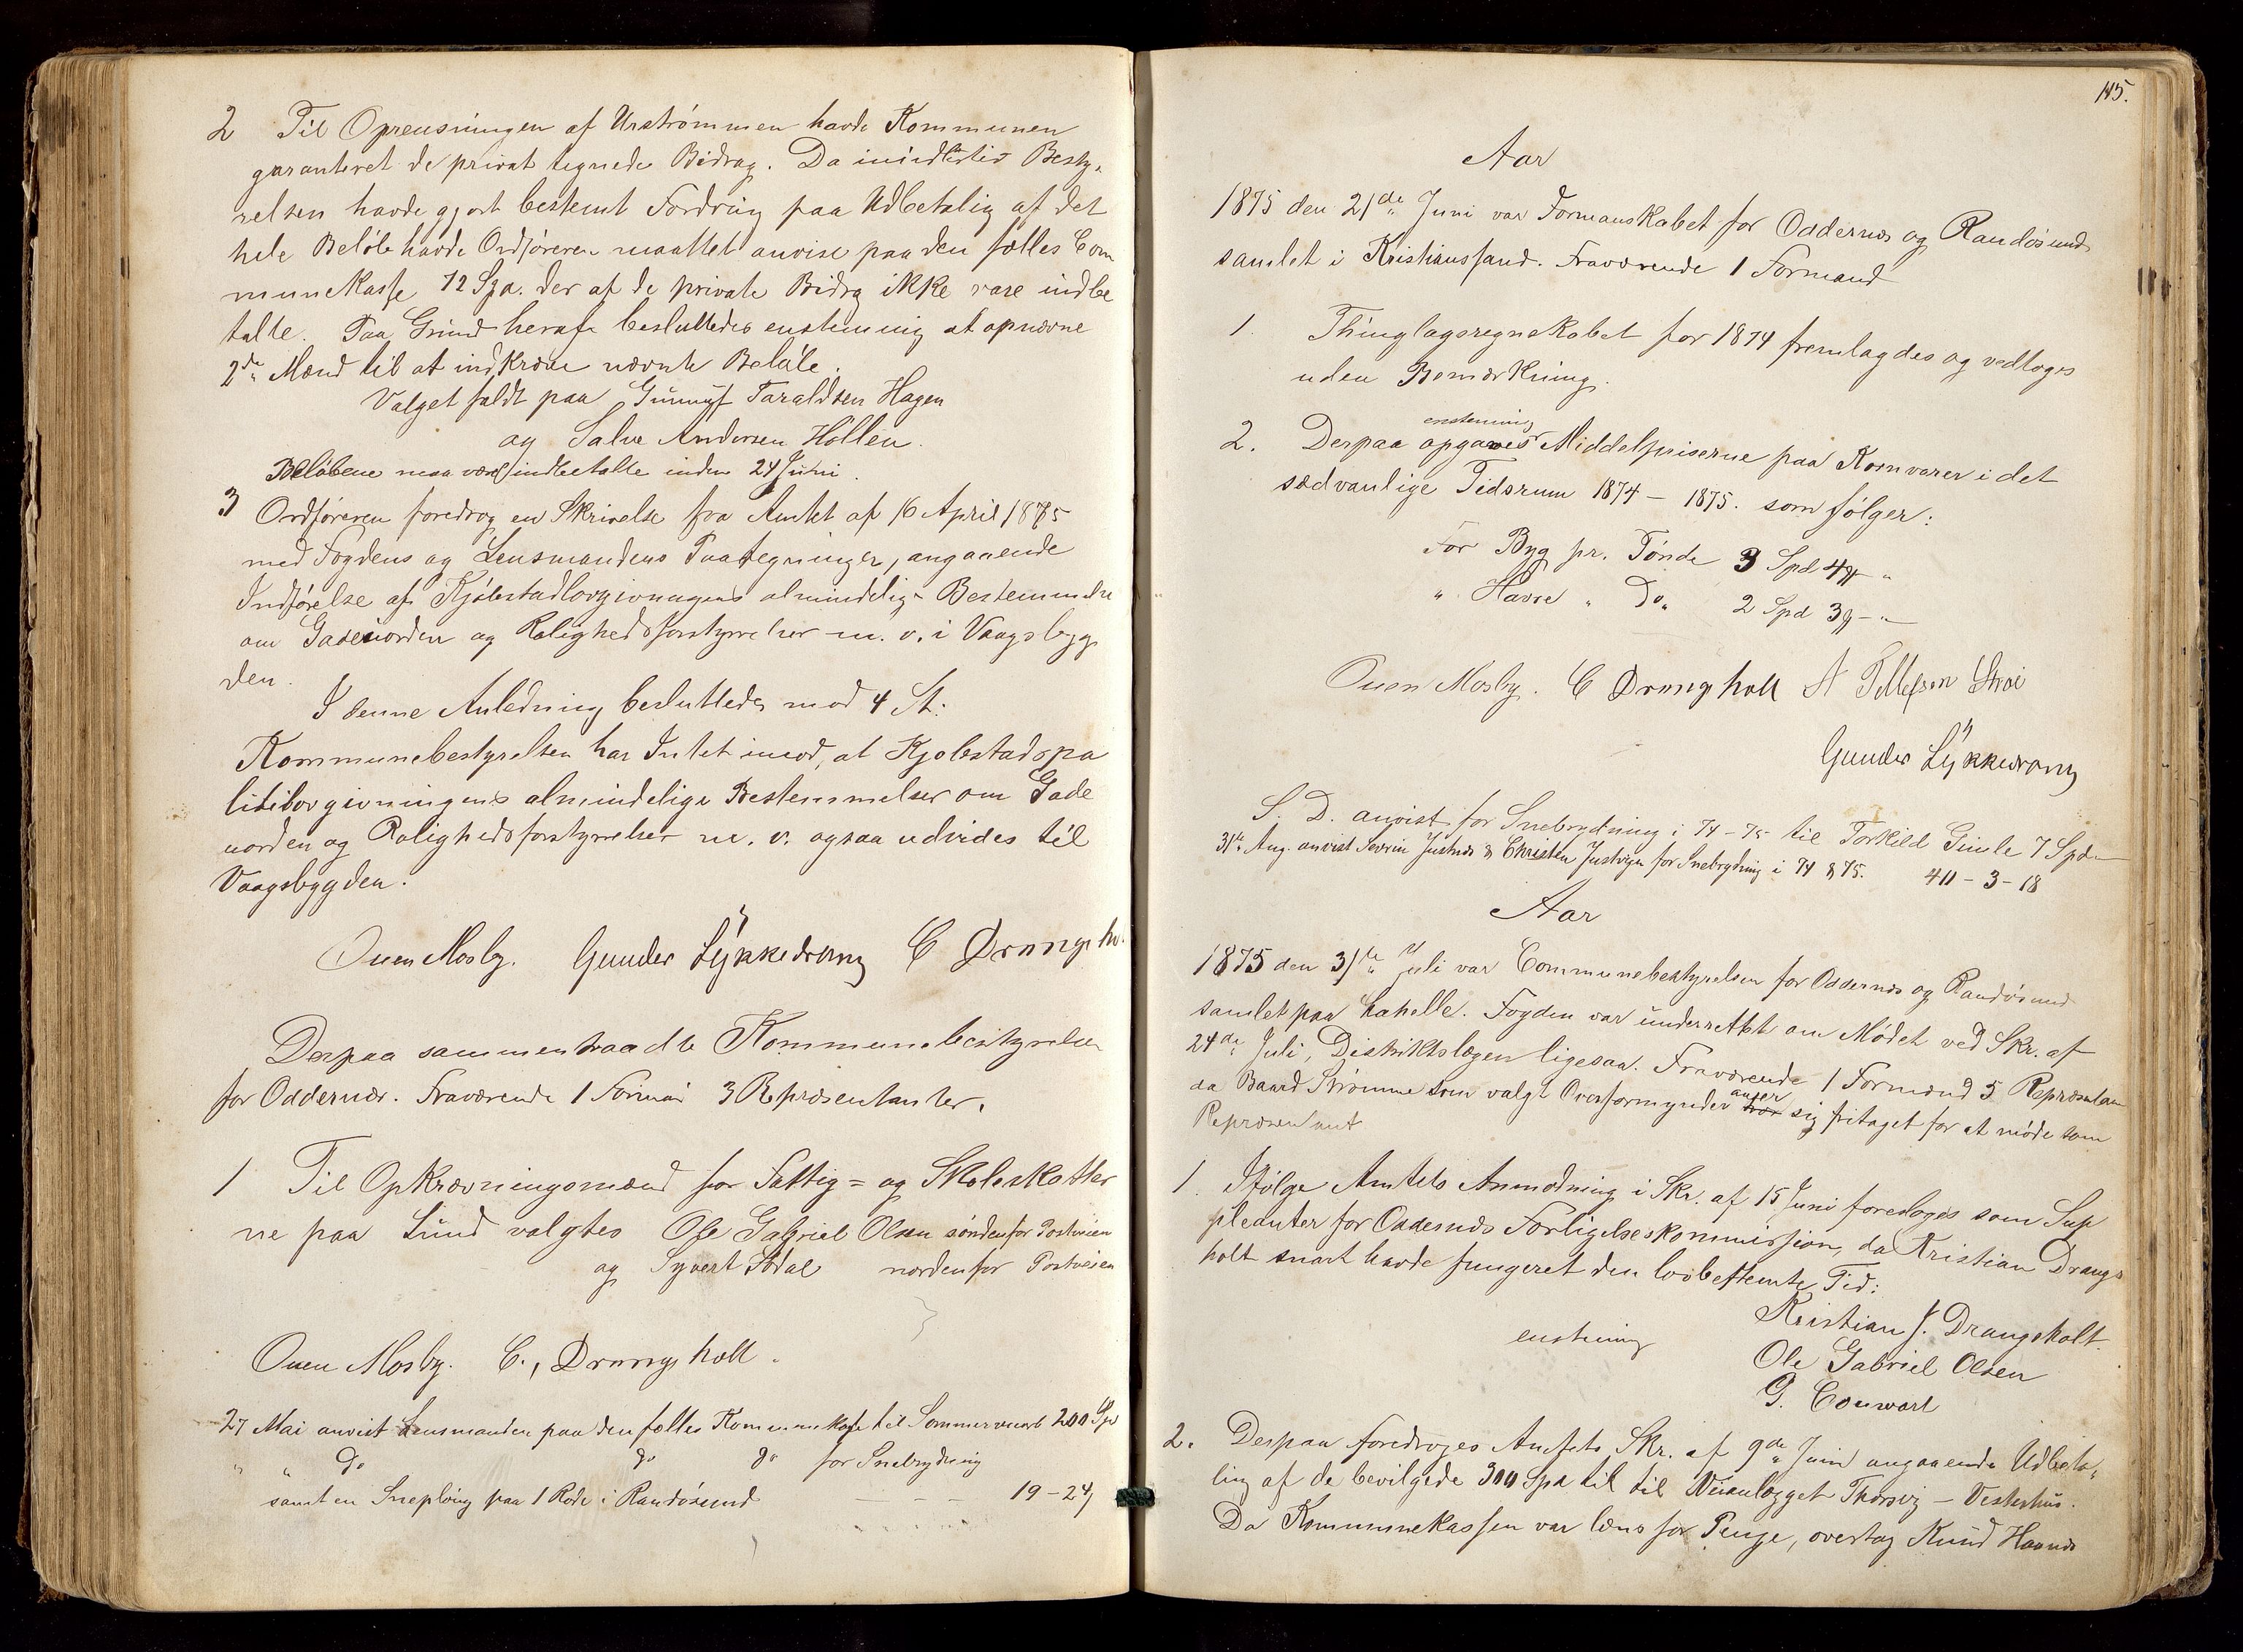 2 Til Oprensningen af Urstrømmen havde Kommunen
garanteret de privat tegnede Bidrag. Da imidlertid Besty-
relsen havde gjort bestemt Fordring paa Udbetaling af det
hele Beløb havde Ordføreren maattet anvise paa den fælles Com
munekasse 72 Spd. der af de private Bidrag ikke vare indbe
talte. Paa Grund heraf besluttedes enstemmig at opnævne
2de Mænd til at indkræve nævnte Beløb.
Valget faldt paa Gunnuf Taraldsen Hagen
og Salve Andersen Hollen.
Beløbene maa være indbetalte inden 24 Juni.
3 Ordføreren foredrog en Skrivelse fra Amtet af 16 April 1875
med Fogdens og Lensmandens Paategninger, angaaende
Indførelse af Kjøbstadlovgivningens almindelige Bestemmelser
om Gadeuorden og Rolighedsforstyrrelser m. v. i Vaagsbyg
den.
I denne Anledning besluttedes mod 4 St:
Kommunebestyrelsen har Intet imod, at Kjøbstadspo
litilovgivningens almindelige Bestemmelser om Gade
uorden og Rolighedsforstyrrelser m. v. ogsaa udvides til
Vaagsbygden.
Ouen Mosby. Gunder Lykkedrang C Drangsho
Derpaa sammentraadte Kommunebestyrelsen
for Oddernes. Fraværende 1 Formand 3 Repræsentanter.
1 Til Opkrævningsmænd for Fattig= og Skoleskatter
ne paa Lund valgtes Ole Gabriel Olsen søndenfor Postveien
og Syvert Sødal nordenfor Postveien
Ouen Mosby. C., Drangsholt.
27 Mai anvist Lensmanden paa den fælles Kommunekasse til Sommerveiarb 200 Sp
" " Do do do for Snebrydning
samt en Sneploug paa 1 Rode i Randøsund - - - 19-24/
115.
Aar
1875 den 21de Juni var Formanskabet for Oddernes og Randøsund
samlet i Kristianssand. Fraværende 1 Formand
1. Thinglagsregnskabet for 1874 fremlagdes og vedtoges
uden Bemærkning.
enstemmig
2. Derpaa opgaves Middelpriserne paa Kornvarer i det
sædvanlige Tidsrum 1874 - 1875. som følger:
For Byg pr. Tønde 3 Spd 4 "
" Havre " Do " 2 Spd 3 - "
Ouen Mosby. C Drangsholt A Tellefsen Strai
Gunder Lykkedrang
S. D. anvist for Snebrydning i 74-75 til Torkild Gimle 7 Spd
31te Aug. anvist Severin Justnes & Christen Justvigen for Snebrydning i 74 & 75. 40-3-18
Aar
1875 den 31te Juli var Communebestyrelsen for Oddernes og Randøsund
samlet paa Kapelle. Fogden var underrettet om Mødet ved Skr. af
24de Juli, Distriktslægen ligesaa. Fraværende 1 Formand 5 Repræsentan
da Baard Strømme som valgt Overformynder anser sig fritaget for at møde som
Repræsentant
1. Ifølge Amtets Anmodning i Skr. af 15 Juni foresloges som Sup
pleanter for Oddernes Forligelseskommission, da Kristian Drangs
holt snart havde fungeret den lovbestemte Tid:
Kristian J. Drangsholt.
enstemig Ole Gabriel Olsen
G. Conwart
2. Derpaa foredroges Amtets Skr. af 9de Juni angaaende Udbeta-
ling af de bevilgede 300 Spd til til Veianlægget Thorsvig - Vesterhus.
Da Kommunekassen var læns for Penge, overtog Knud Haanes